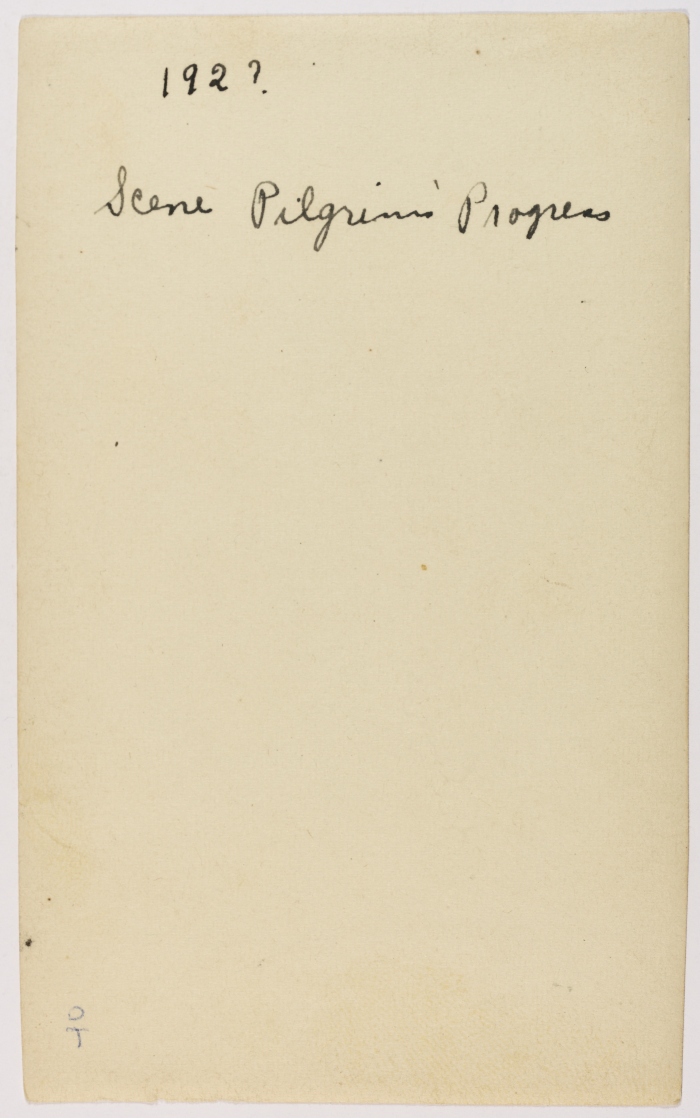 192?.
Scene Pilgrim's Progress